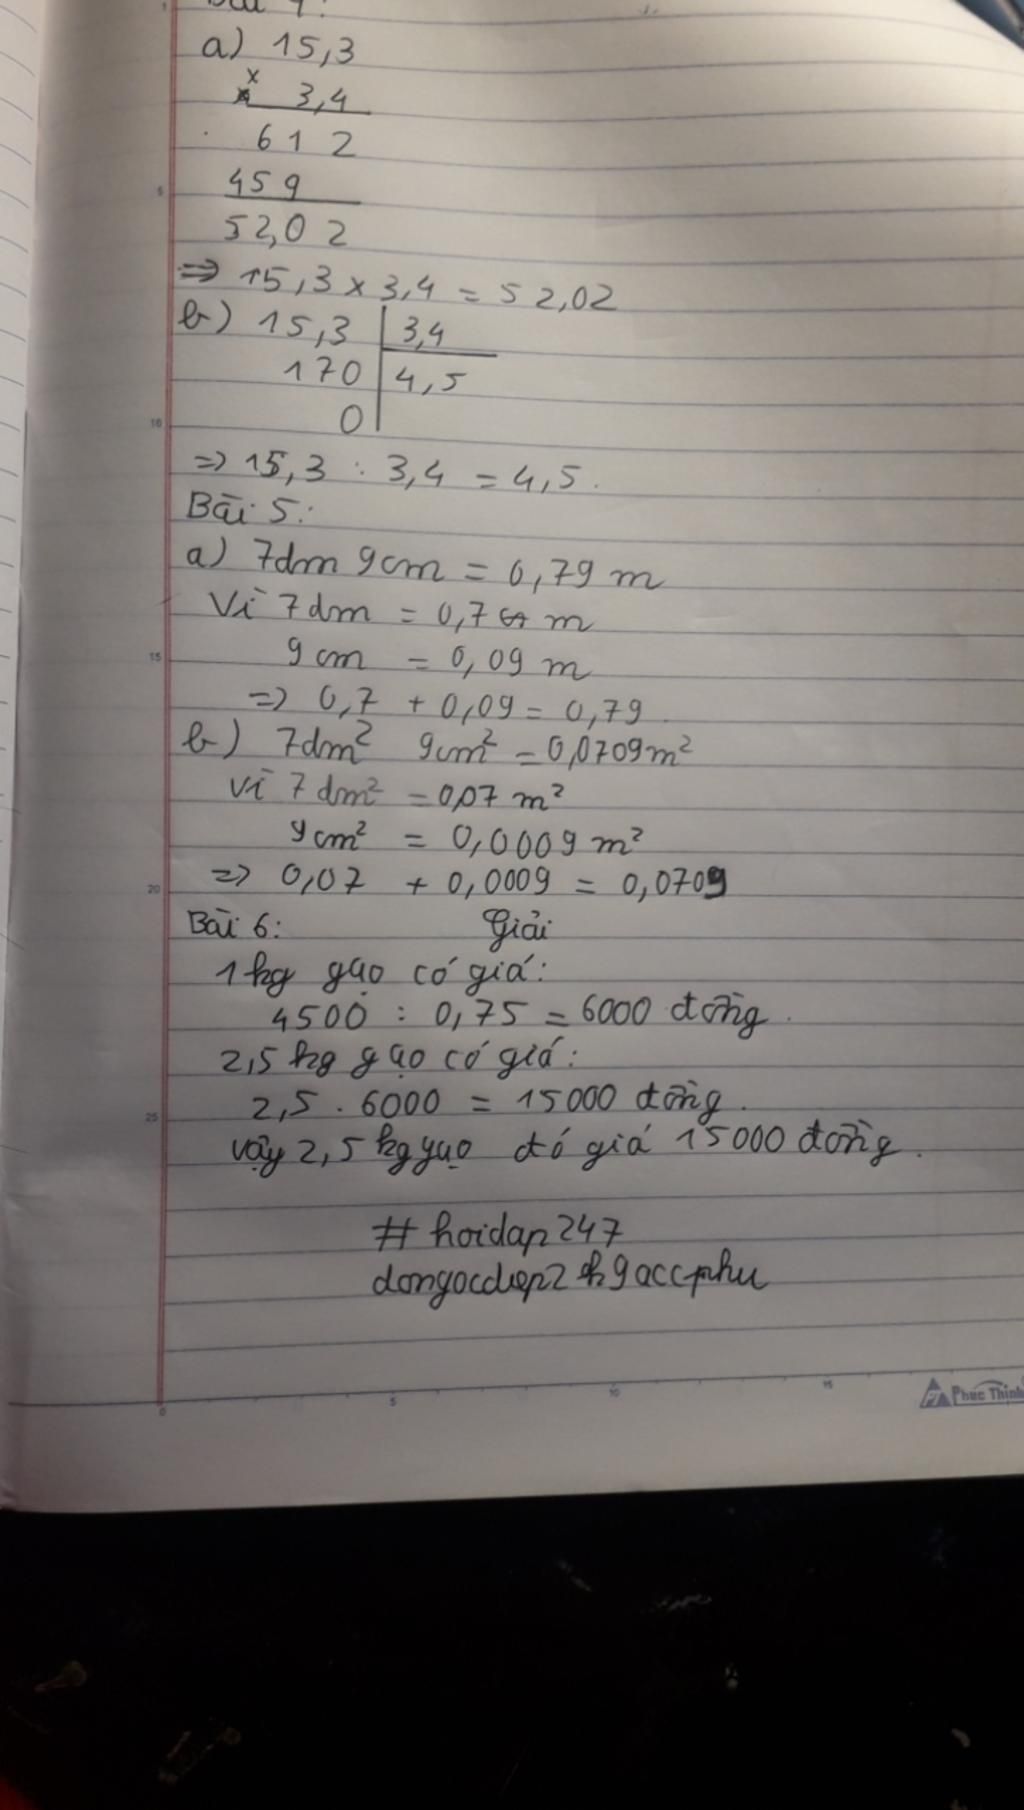 Bài 4:
a) 15,3
x 3,4
612
459
52,02
=> 15,3 x 3,4 = 52,02
b) 15,3 | 3,4
170 | 4,5
0
=> 15,3 : 3,4 = 4,5.
Bài 5:
a) 7dm 9cm = 0,79 m
Vì 7dm = 0,7 m
9cm = 0,09 m
=> 0,7 + 0,09 = 0,79.
b) 7dm² 9cm² = 0,0709m²
Vì 7dm² = 0,07 m²
9cm² = 0,0009 m²
=> 0,07 + 0,0009 = 0,0709
Bài 6: Giải
1kg gạo có giá:
4500 : 0,75 = 6000 đồng.
2,5 kg gạo có giá:
2,5 . 6000 = 15000 đồng.
Vậy 2,5kg gạo đó giá 15000 đồng.
# hoidap247
Phuc Thinh